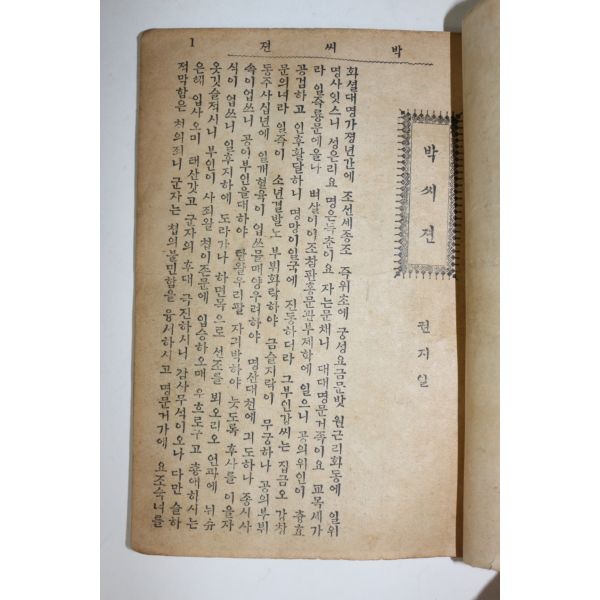 박씨젼
1
박씨젼
권지일
화셜대명가졍년간에 조션세종조 즉위초에 궁성요금문밧 원근리화동에 일위
명사잇스니 성은리요 명은득춘이요 자는문채니 대대명문거족이요 교목세가
라 일즉룡문에올나 벼살이이조참판홍문관부제학에 일으니 공의위인이 츙효
공검하고 인후활달하니 명망이일국에 진동하더라 그부인강씨는 집금오 강창
문의녀라 일즉이 소년결발노 부뷔화락하야 금슬지락이 무궁하나 공의부뷔
동주사십년에 일개혈육이 업쓰믈매양우러하야 명산대천에 긔도하나 종시사
속이업쓰니 공이부인을대하야 탄왈우리팔자긔박하야 늣도록 후사를 이을자
식이 업쓰니 일후지하에 도라가나 하면목으로 션조를 뵈오리오 언파에 뉘슈
옷깃슬적시니 부인이 사죄왈 첩이존문에 입승하오매 우흐로구고 츙애하시는
은혜 입사오미 태산갓고 군자의 후대 극진하시니 감사무석이오나 다만 슬하
적막함은 첩의죄니 군자는 첩의불민함을 용서하시고 명문거가에 요조숙녀를